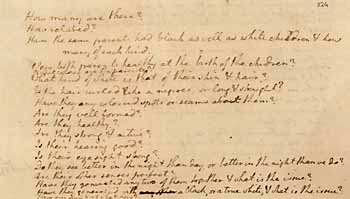 324
How many are there?
How related?
Have the same parents had black as well as white children & how
many of each kind.
Were both parents healthy at the birth of the children?
What kind of white is that of their skin & hair?
Is the hair curled like a negroe's, or long & straight?
Have they any coloured spots or seams about them?
Are they well formed?
Are they healthy?
Are they strong & active?
Is their hearing good?
Is their eyesight strong?
Do they see better in the night than day, or better in the night than we do?
Are their other senses perfect?
Have they generated any two of them together & what is the issue?
Have they generated with a black, or a true white, & what is the issue?